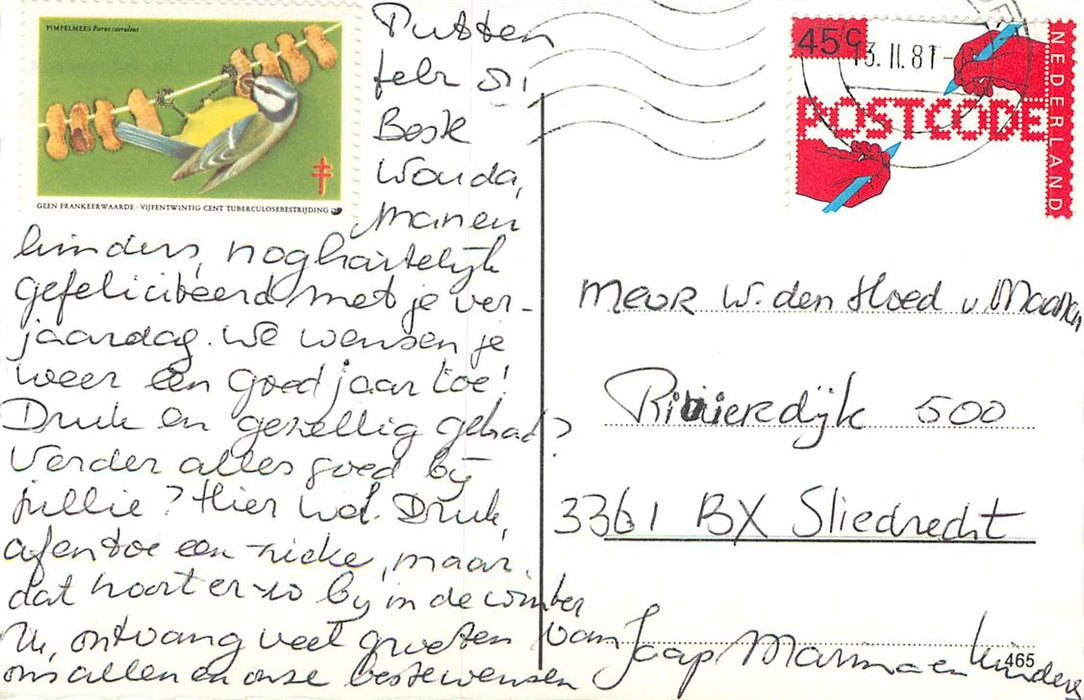 PIMPELMEES Parus caeruleus
GEEN FRANKEERWAARDE - VIJFENTWINTIG CENT TUBERCULOSEBESTRIJDING
Putten
febr 81
Beste
Wouda,
man en
kinders, nog hartelijk
gefeliciteerd met je ver-
jaardag. We wensen je
weer een goed jaar toe!
Druk en gezellig gehad?
Verder alles goed bij
jullie? Hier wel. Druk,
af en toe een zieke, maar
dat hoort er zo bij in de winter
Nu, ontvang veel groeten van
ons allen en onze beste wensen
Jaap Marina en kinders
45c
13.II.81
NEDERLAND
POSTCODE
Mevr W. den Hoed v. Maaren
Rivierdijk 500
3361 BX Sliedrecht
465